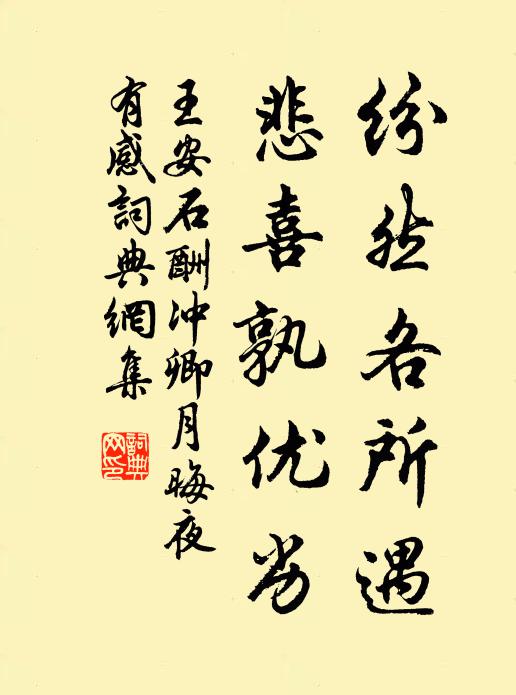 纷然各所遇
悲喜孰优劣
王安石酬冲卿月晦夜
有感詞典網集
詞典網印